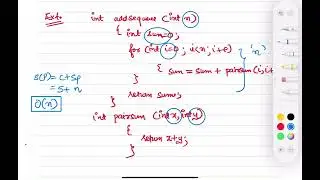 Ext:- int addsequence (int n)
{ int sum=0;
for (int i=0; i<n; i++)
{ sum = sum + pairsum (i, i+
'n'
}
S(P) = C+Sp
= 5+n
O(n)
return sum;
}
int pairsum (int x, int y)
{
return x+y;
}